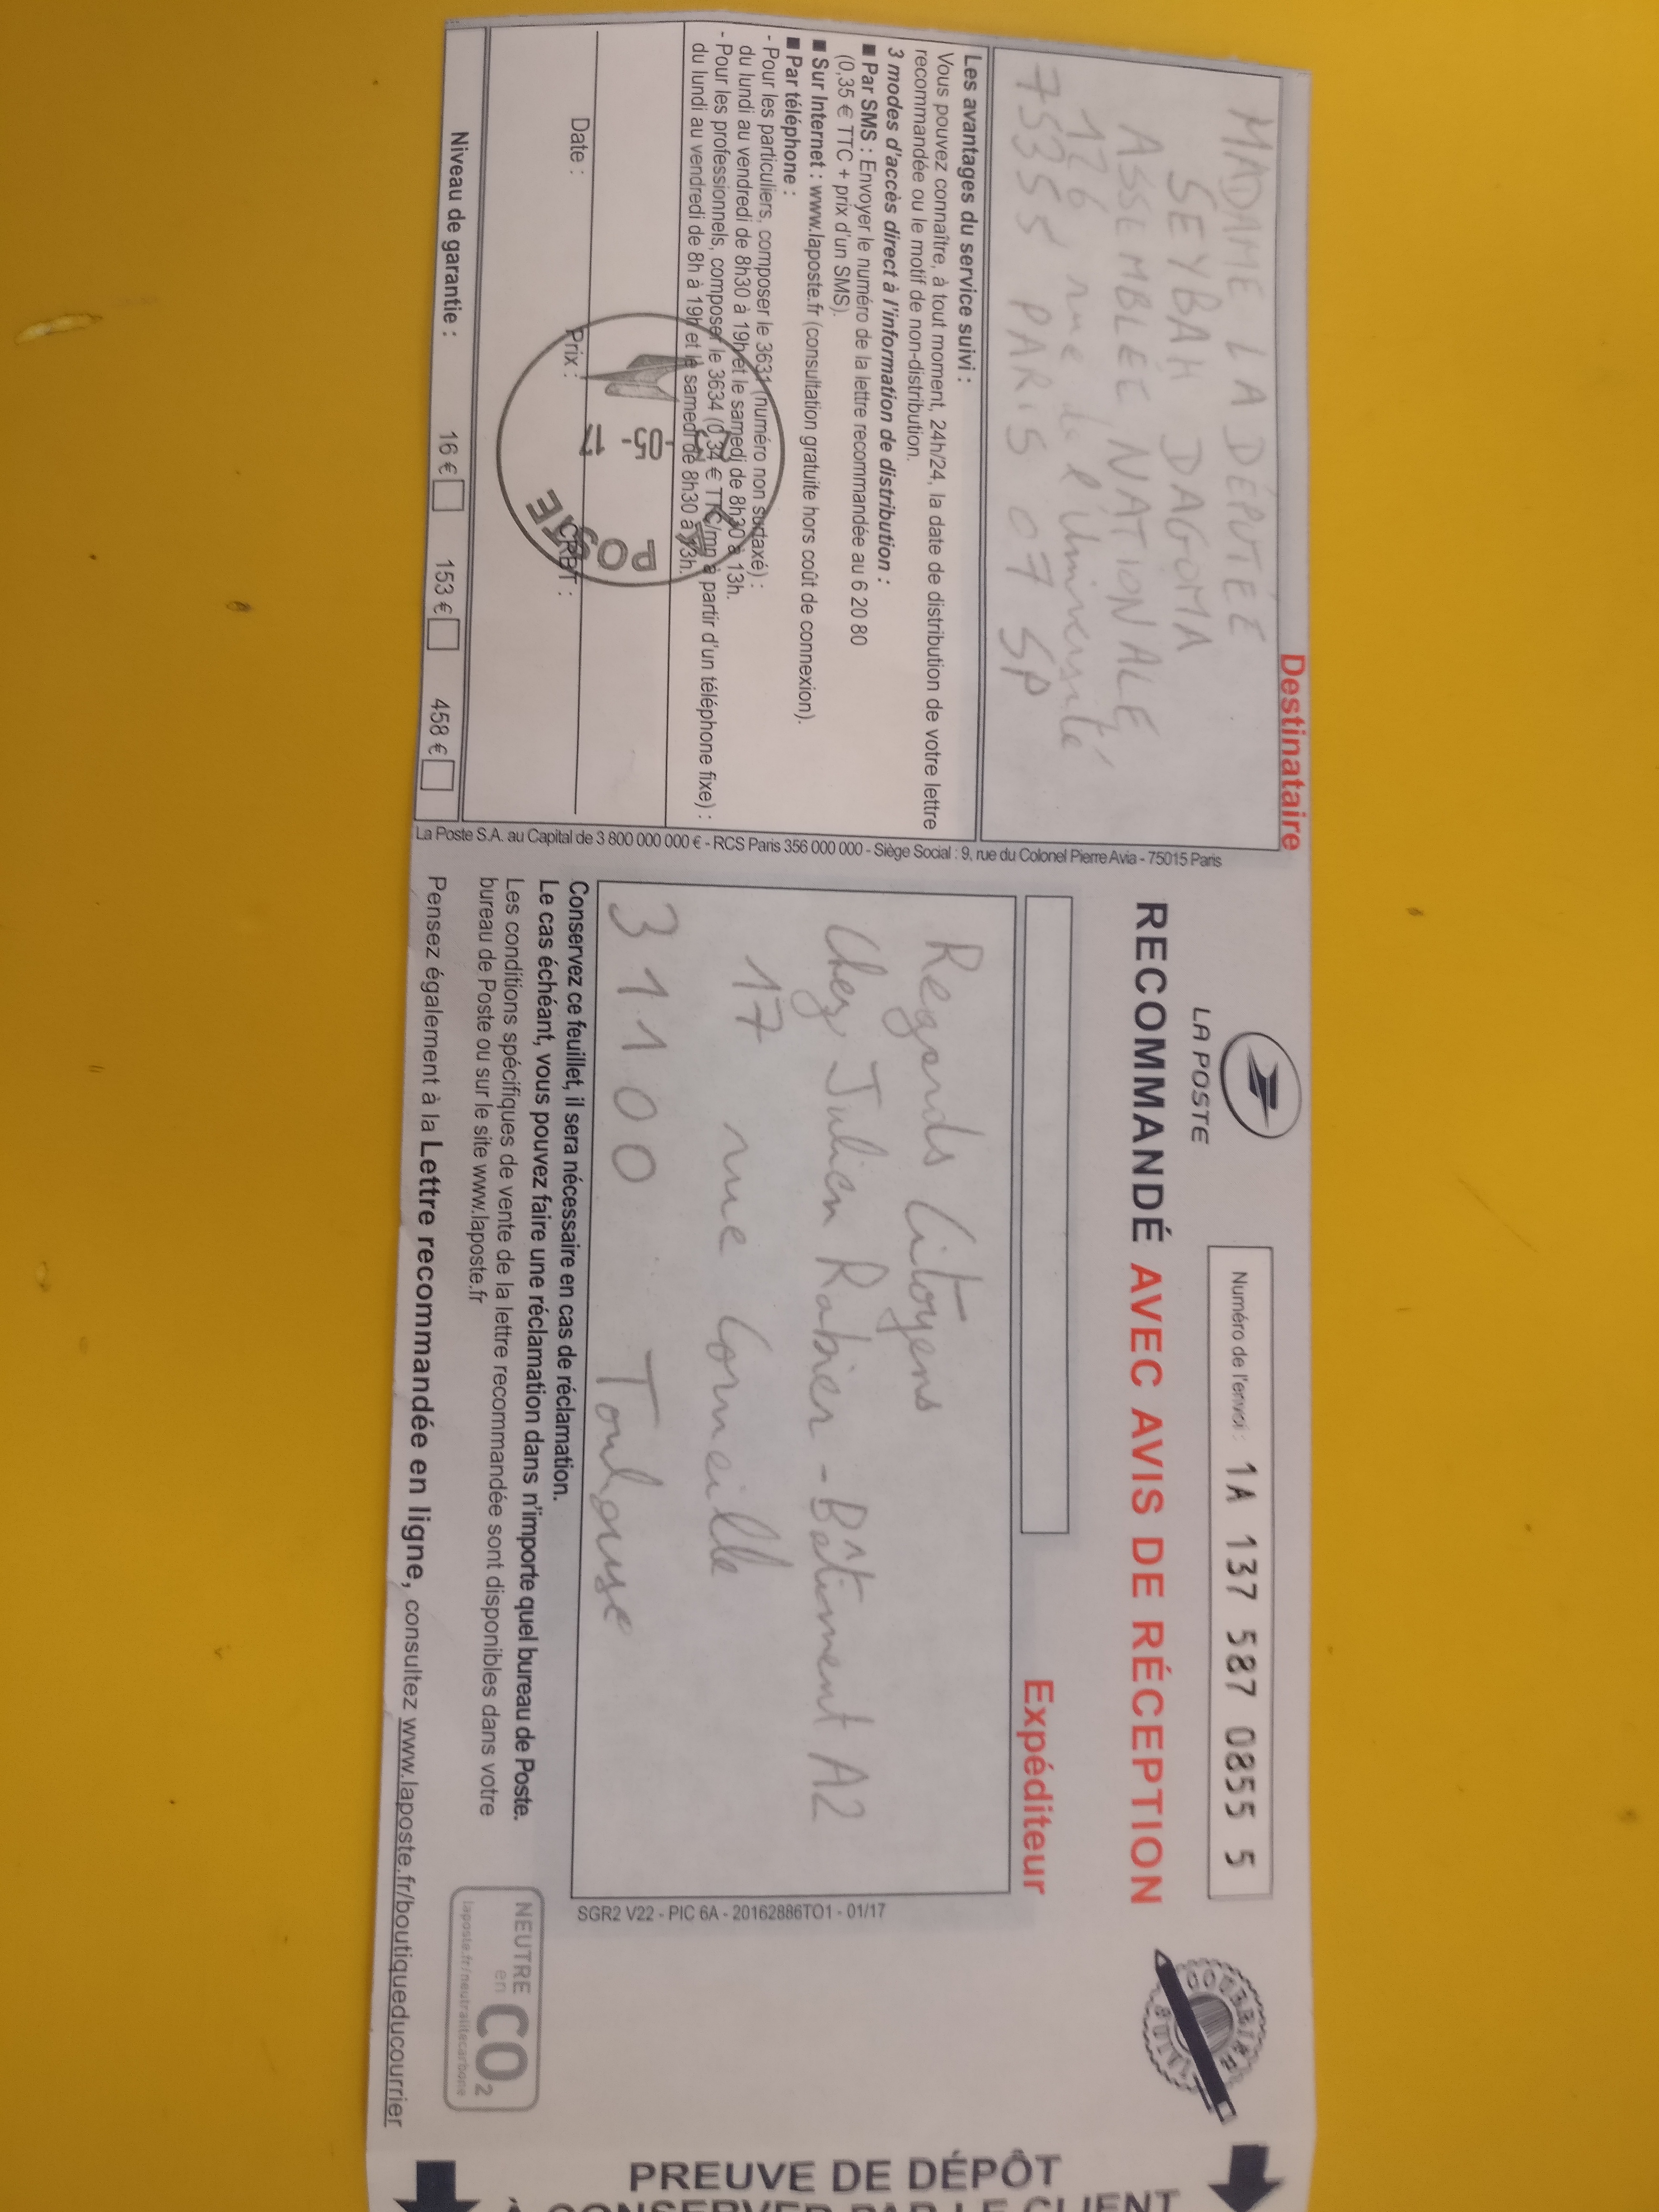 Destinataire
MADAME LA DÉPUTÉE
SEYBAH DAGOMA
ASSEMBLÉE NATIONALE
126 rue de l'Université
75355 PARIS 07 SP
Les avantages du service suivi :
Vous pouvez connaître, à tout moment, 24h/24, la date de distribution de votre lettre
recommandée ou le motif de non-distribution.
3 modes d'accès direct à l'information de distribution :
■ Par SMS : Envoyer le numéro de la lettre recommandée au 6 20 80
(0,35 € TTC + prix d'un SMS).
■ Sur Internet : www.laposte.fr (consultation gratuite hors coût de connexion).
■ Par téléphone :
- Pour les particuliers, composer le 3631 (numéro non surtaxé) :
du lundi au vendredi de 8h30 à 19h et le samedi de 8h30 à 13h.
- Pour les professionnels, composer le 3634 (0,34 € TTC/mn à partir d'un téléphone fixe) :
du lundi au vendredi de 8h à 19h et le samedi de 8h30 à 13h.
Date :
Prix :
CRBT :
-05-
17
POSTE
Niveau de garantie :
16 €
153 €
458 €
La Poste S.A. au Capital de 3 800 000 000 € - RCS Paris 356 000 000 - Siège Social : 9, rue du Colonel Pierre Avia - 75015 Paris
LA POSTE
Numéro de l'envoi : 1A 137 587 0855 5
RECOMMANDÉ AVEC AVIS DE RÉCEPTION
Expéditeur
Regards Citoyens
Chez Julien Rabier - Bâtiment A2
17 rue Corneille
31100 Toulouse
SGR2 V22 - PIC 6A - 20162886TO1 - 01/17
Conservez ce feuillet, il sera nécessaire en cas de réclamation.
Le cas échéant, vous pouvez faire une réclamation dans n'importe quel bureau de Poste.
Les conditions spécifiques de vente de la lettre recommandée sont disponibles dans votre
bureau de Poste ou sur le site www.laposte.fr
Pensez également à la Lettre recommandée en ligne, consultez www.laposte.fr/boutiqueducourrier
NEUTRE
en
CO2
laposte.fr/neutralitecarbone
PREUVE DE DÉPÔT
À CONSERVER PAR LE CLIENT